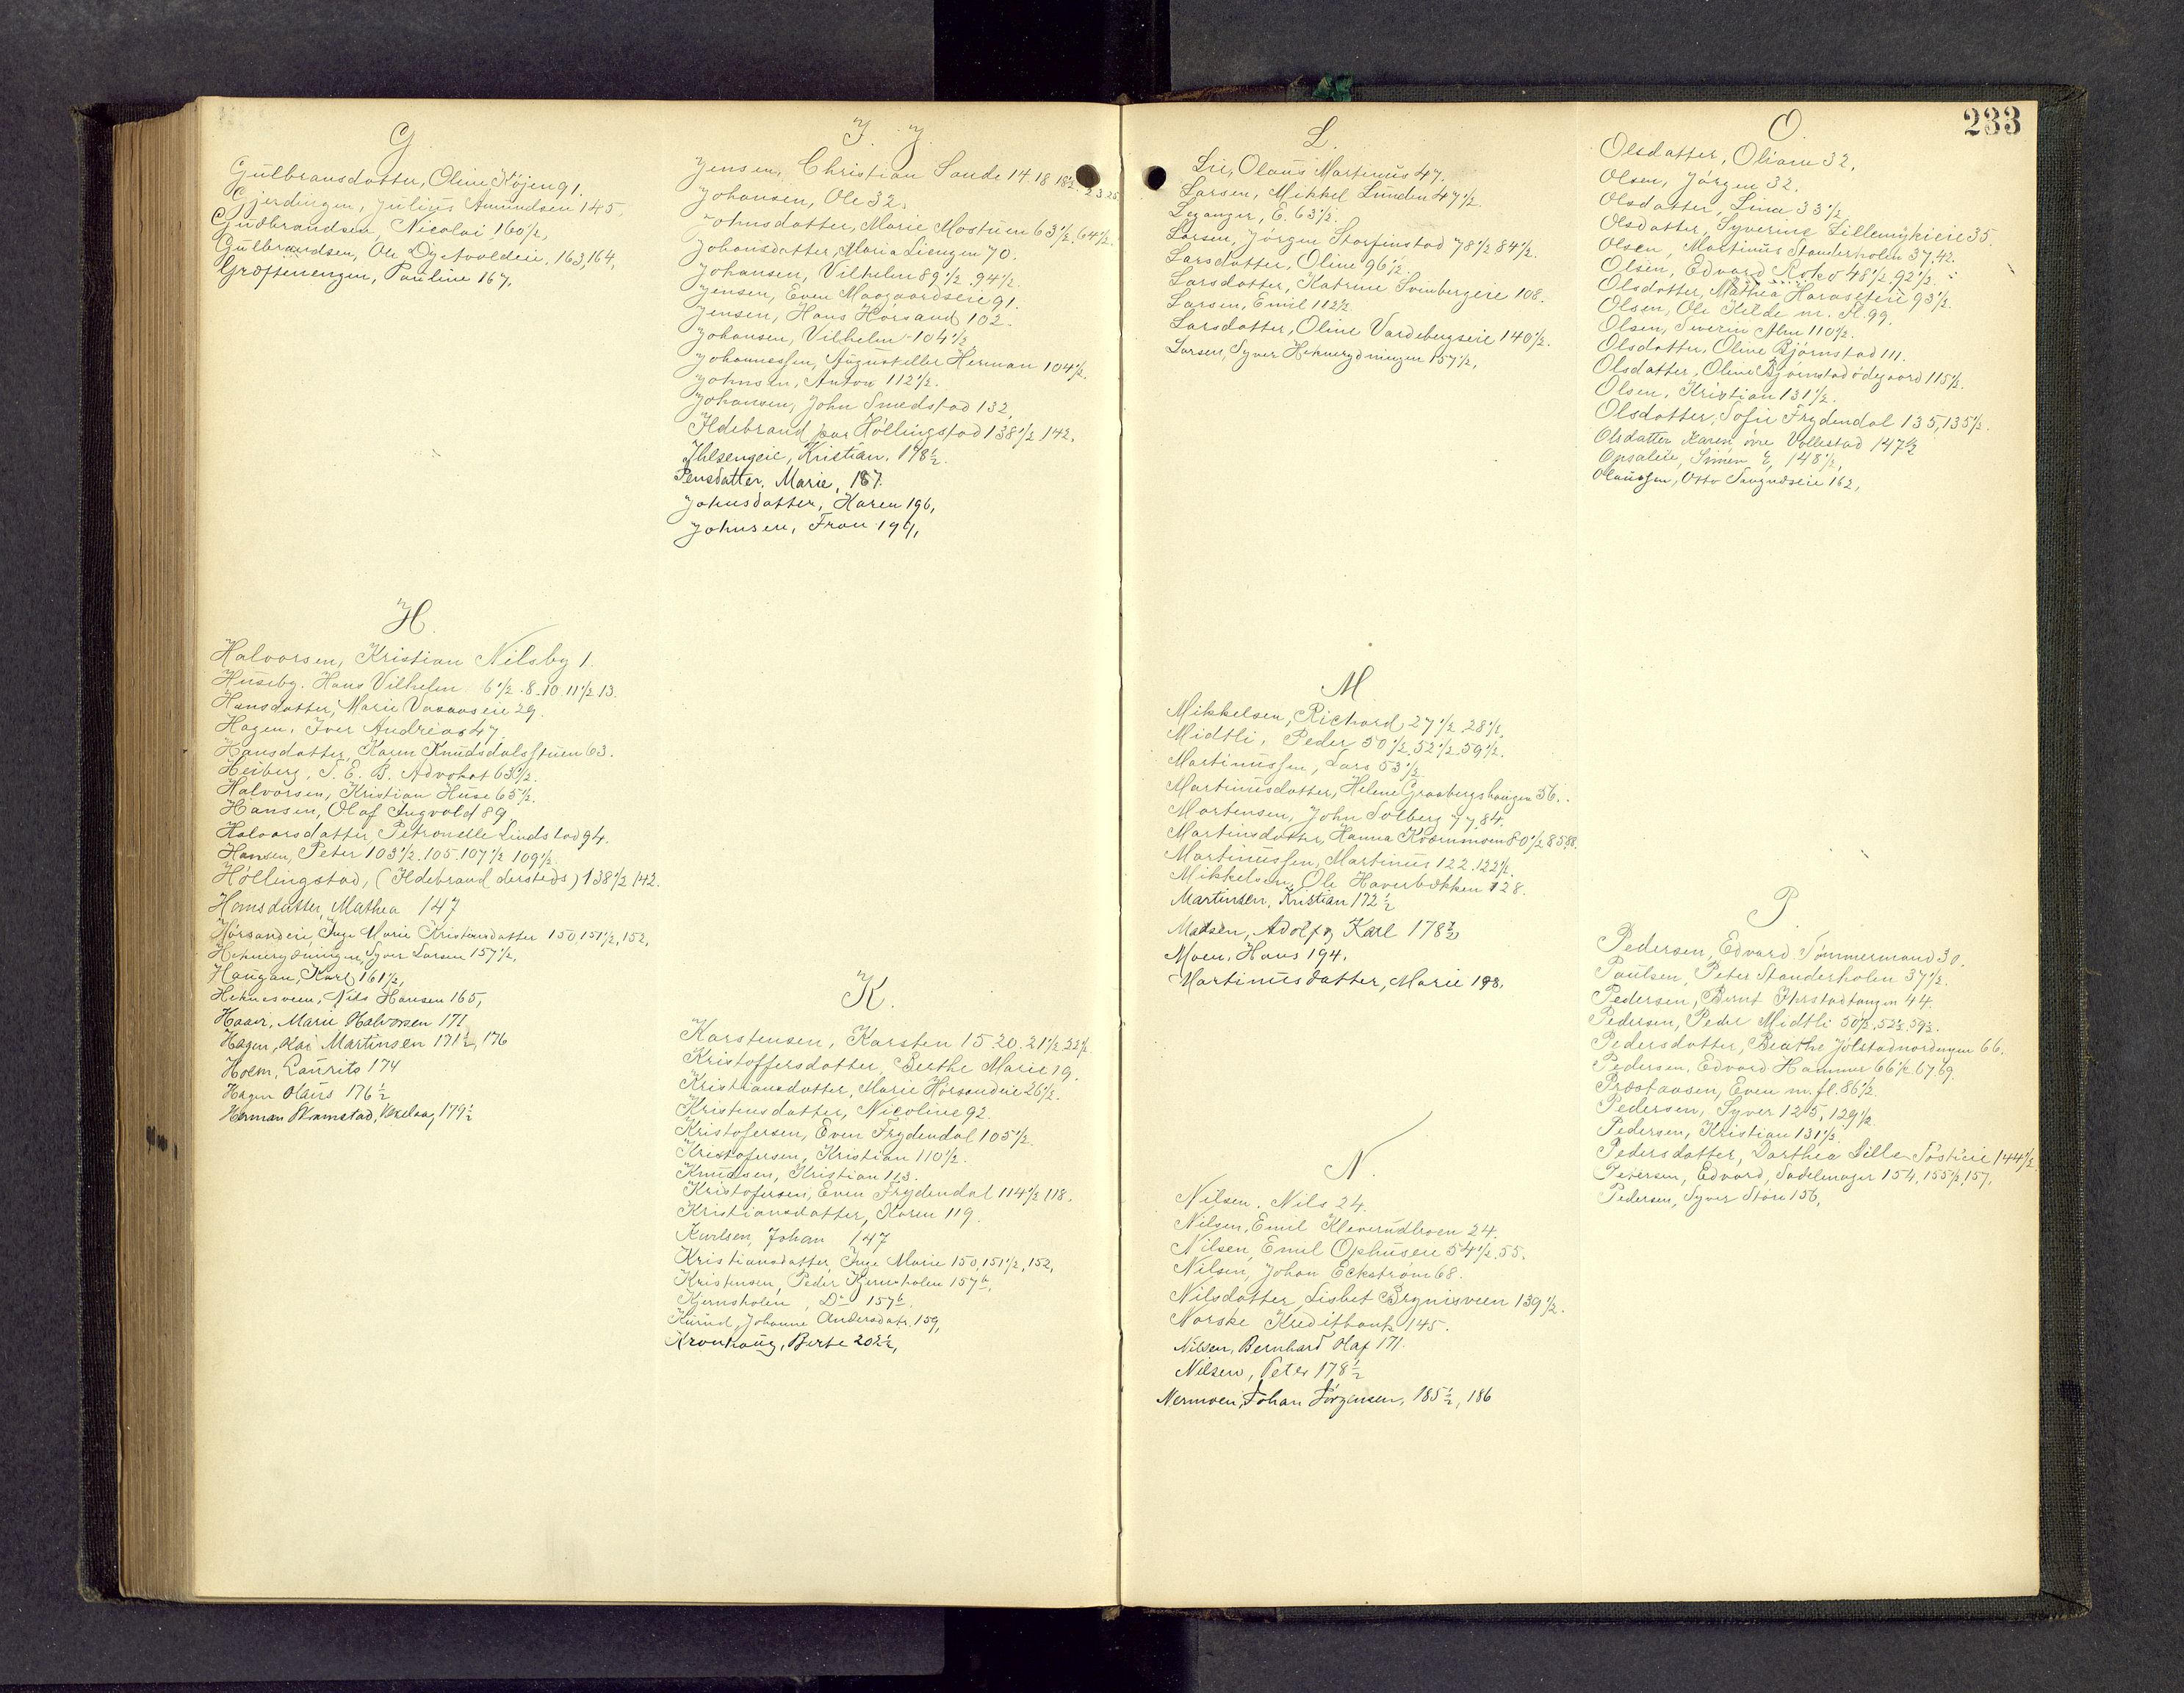 G
Gulbransdatter, Oline Højen 91.
Gjerdingen, Julius Amundsen 145,
Gudbrandsen, Nicolai 160½,
Gulbrandsen, Ole 163, 164,
Grøftenengen, Pauline 167,
H.
Halvorsen, Kristian Nilsby 1.
Huseby. Hans Vilhelm 6½. 8. 10. 11½. 13.
Hansdatter, Marie Vasaaseie 29.
Hagen, Iver Andreas 47.
Hansdatter, Karen Knudsdalsstuen 63.
Heiberg, T. E. B. Advokat 63½.
Halvorsen, Kristian Huse 65½.
Hansen, Olaf Ingvold 89
Halvorsdatter, Petronelle Lindstad 94.
Hansen, Peter 103½. 105. 107½ 109½.
Høllingstad, (Ildebrand dersteds) 138½ 142.
Hansdatter, Mathea 147
Hørsandeie, Inge Marie Kristiansdatter 150, 151½, 152,
Heknerydningen, Syver Larsen 157½,
Haugan, Karl 161½,
Heknesveen, Nils Hansen 165,
Haaer, Marie Halvorsen 171
Hagen, Kai Martinsen 171½, 176
Holm, Laurits 174
Hagen Olaus 176½
Herman 179½
I. J.
Jensen, Christian Sande 14. 18 18½. 23 25
Johansen, Ole 32.
Johnsdatter, Marie Mostuen 63½. 64½.
Johansdatter, Maria Liengen 70.
Johansen, Vilhelm 89½. 94½.
Jensen, Even Maagaardseie 91.
Jensen, Hans Hørsand 102.
Johansen, Vilhelm 104½
Johannessen, August eller Herman 104½.
Johnsen, Anton 112½.
Johansen, John Smedstad 132,
Ildebrand paa Høllingstad 138½ 142.
Ihlsengeie, Kristian, 178½.
Jensdatter, Marie, 187.
Johnsdatter, Karen 196,
Johnsen, Fran 199,
K.
Karstensen, Karsten 15. 20. 21½ 22½
Kristoffersdatter, Berthe Marie 19.
Kristiansdatter, Marie Hørsandeie 26½.
Kristensdatter, Nicoline 92.
Kristofersen, Even Frydendal 105½.
Kristofersen, Kristian 110½.
Knudsen, Kristian 113.
Kristofersen, Even Frydendal 114½ 118.
Kristiansdatter, Karen 119.
Karlsen, Johan 147
Kristiansdatter, Inge Marie 150, 151½, 152,
Kristensen, Peder Kjernsholen 157b,
Kjernsholen, Do 157b.
Kurud, Johanne Andersdatr. 159,
Kronhaug, Berte 202½,
233
L.
Lie, Olaus Martinus 47.
Larsen, Mikkel Lunden 47½.
Leganger, E. 63½.
Larsen, Jørgen Storfinstad 78½ 84½.
Larsdatter, Oline 96½.
Larsdatter, Katrine Svenbergeie 108.
Larsen, Emil 112½
Larsdatter, Oline Vardebergseie 140½.
Larsen, Syver Heknerydningen 157½,
M
Mikkelsen, Richard 27½, 28½,
Midtli, Peder 50½. 52½. 59½.
Martinussen, Lars 53½
Martinusdatter, Helene Graabergshaugen 56.
Mortensen, John Solberg 77. 84.
Martinsdatter, Hanna Kværnmoen 80½ 85. 88.
Martinussen, Martinus 122. 122½.
Mikkelsen, Ole Haverbækken 128.
Martinsen, Kristian 172½
Madsen, Adolf og Karl 178½
Moen, Hans 194.
Martinusdatter, Marie 198.
N.
Nilsen. Nils 24.
Nilsen, Emil Kleverudbroen 24.
Nilsen, Emil Ophuseie 54½. 55.
Nilsen, Johan Eckstrøm 68.
Nilsdatter, Lisbet Brynisveen 139½.
Norske Kreditbank 145.
Nilsen, Bernhard Olaf 171.
Nilsen, Peter 178½
Nermoen, Johan Jørgensen, 185½, 186
O.
Olsdatter, Oliane 32.
Olsen, Jørgen 32.
Olsdatter, Lina 33½
Olsdatter, Syverine Lillemykieie 35.
Olsen, Martinus Standerholen 37. 42.
Olsen, Edvard Roko 48½. 92½.
Olsdatter, Mathea Haraseteie 93½.
Olsen, Ole Kilde m. fl. 99.
Olsen, Severin Alm 110½.
Olsdatter, Oline Bjørnstad 111.
Olsdatter, Oline Bjørnstadødegaard 115½.
Olsen, Kristian 131½.
Olsdatter, Sofie Frydendal 135, 135½.
Olsdatter Karen øvre Vollestad 147½
Opsaleie, Simen E, 148½,
Olaussen, Otto Saugndseie 162,
P.
Pedersen, Edvard Tømmermand 30.
Paulsen, Peter Standerholen 37½.
Pedersen, Bernt Iherstadtangen 44.
Pedersen, Peder Midtli 50½. 52½ 59½.
Pedersdatter, Beathe Jølstadnordengen 66.
Pedersen, Edvard Hammer 66½ 67 69.
Præstaasen, Even m. fl. 86½.
Pedersen, Syver 125, 129½
Pedersen, Kristian 131½.
Pedersdatter, Dorthea Lille 144½
Petersen, Edvard, Sadelmager 154, 155½, 157,
Pedersen, Syver Støre 156,